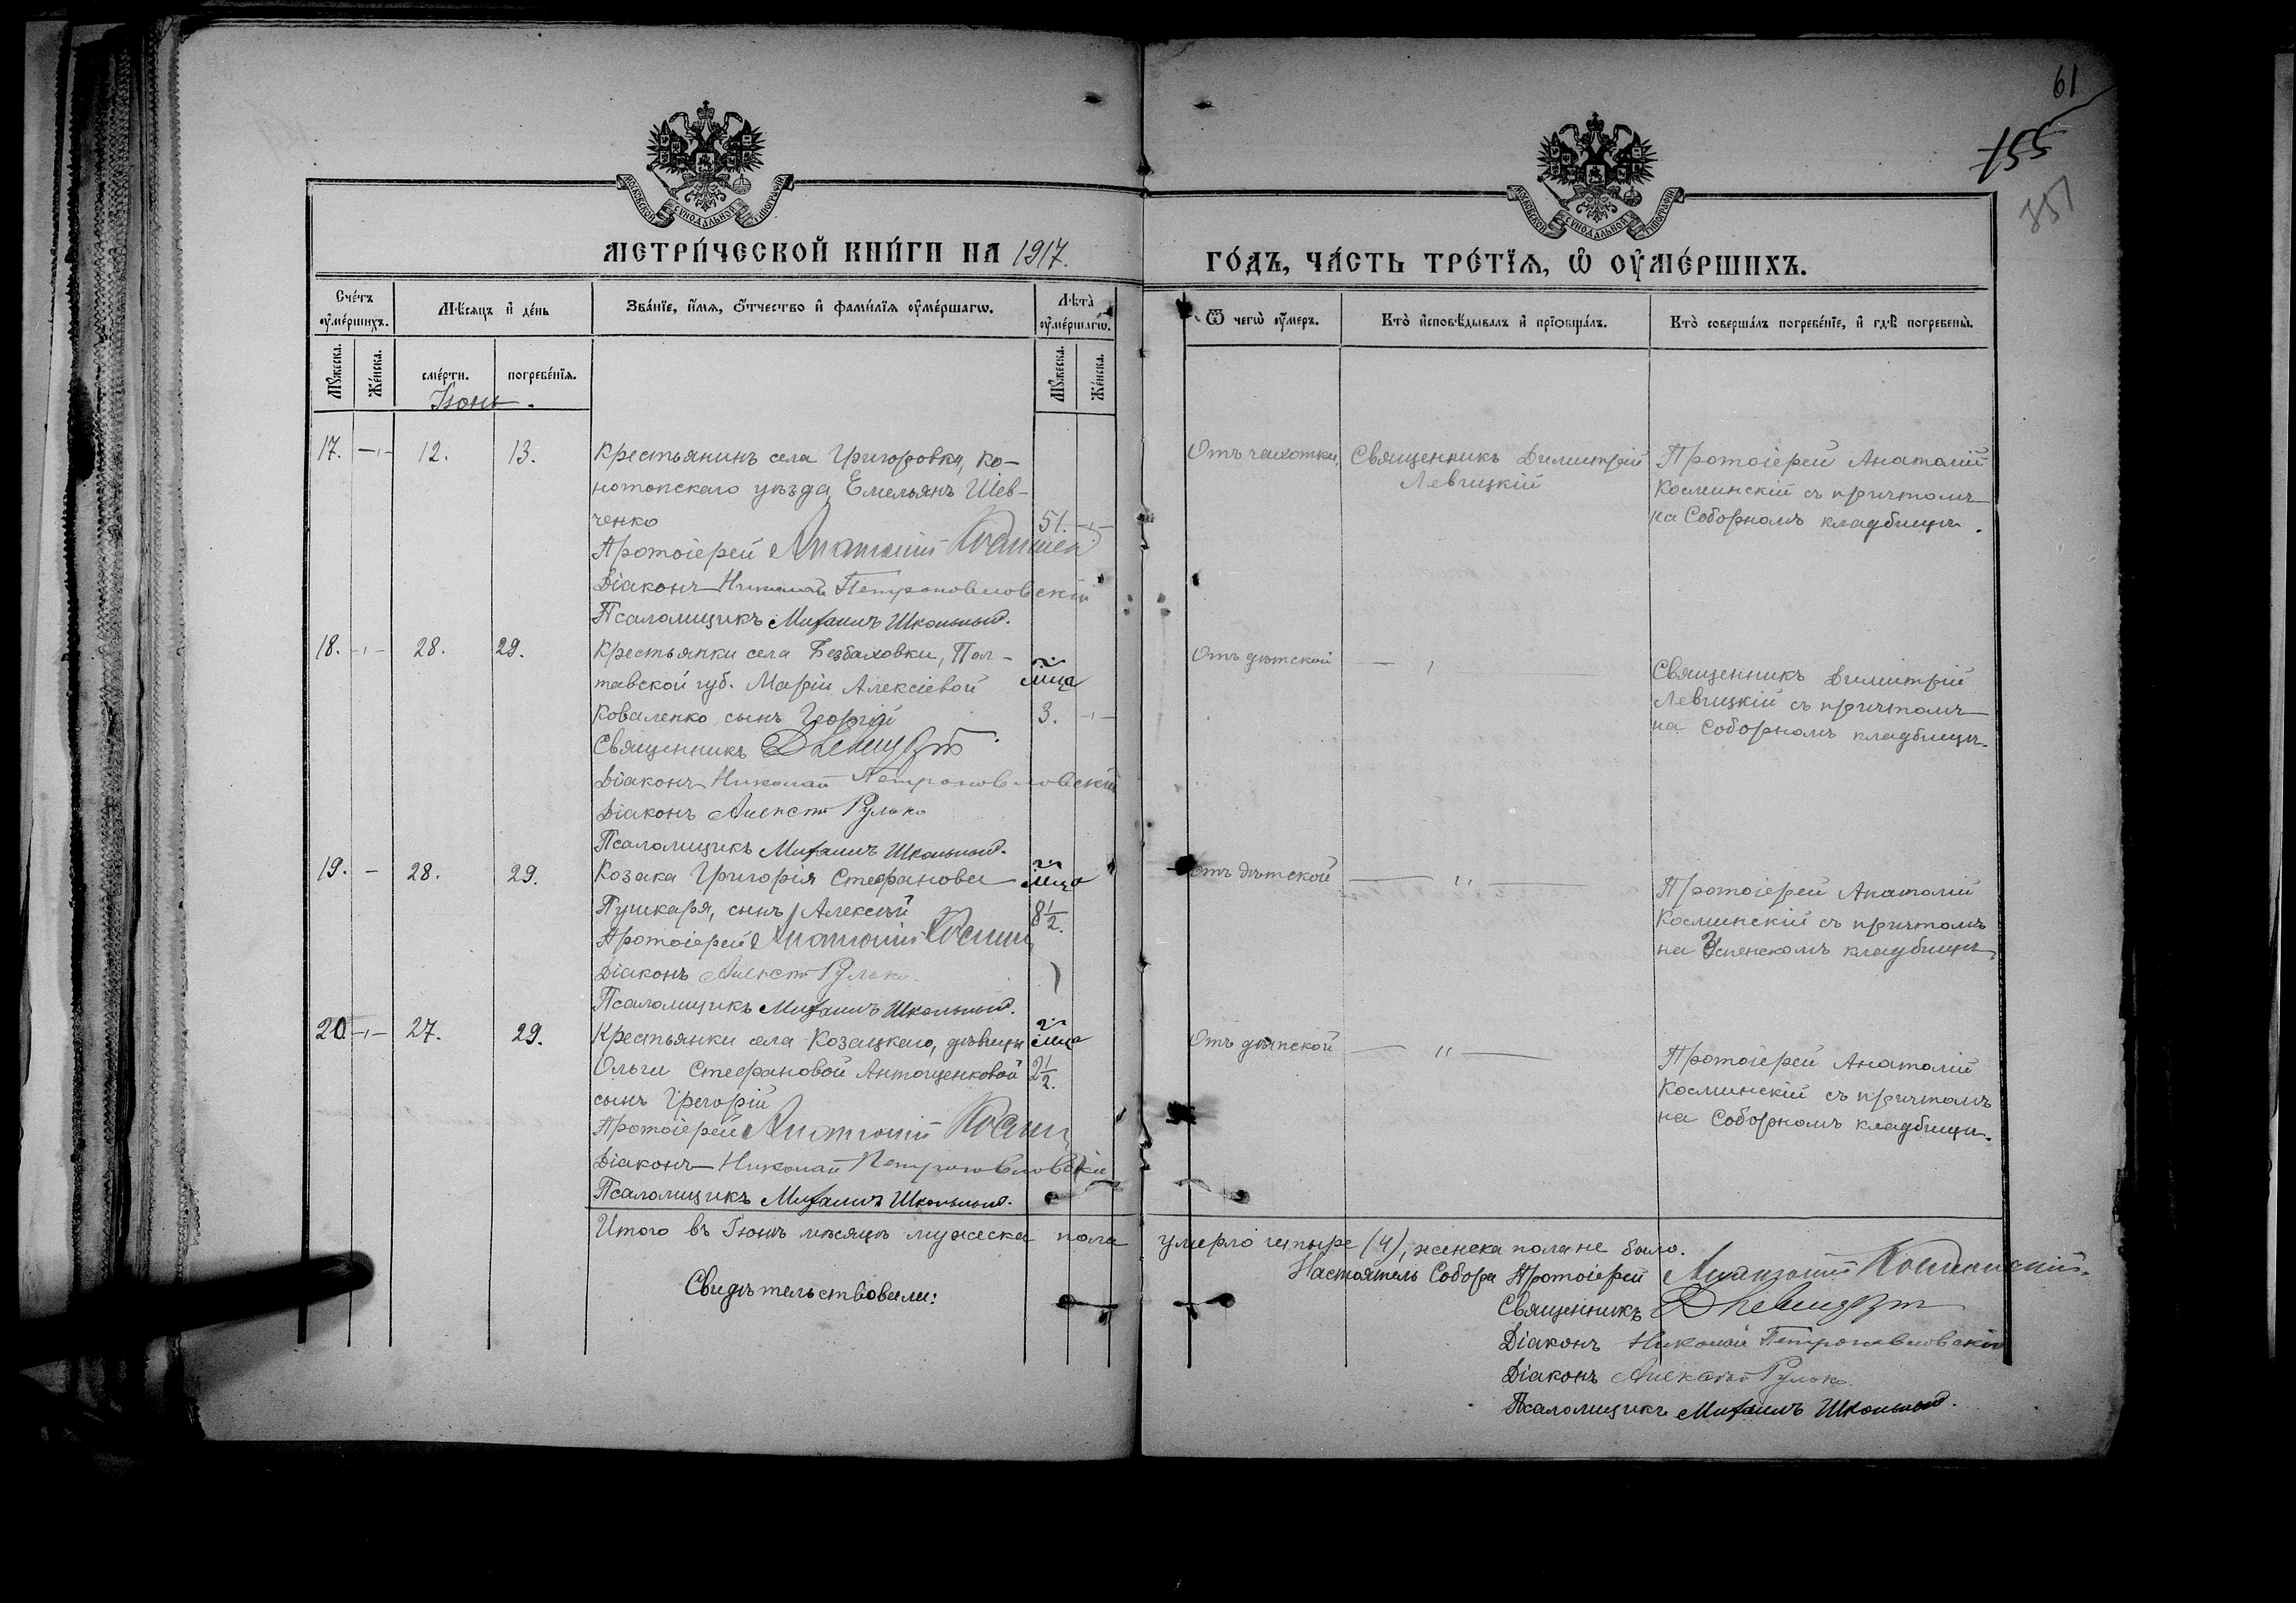 61
155
351
МОСКОВСКОЙ СѴНОДАЛЬНОЙ ТИПОГРАФІИ
МОСКОВСКОЙ СѴНОДАЛЬНОЙ ТИПОГРАФІИ
МЕТРИ́ЧЕСКОЙ КНИ́ГИ НА 1917.
ГО́ДЪ, ЧА́СТЬ ТРЕ́ТІЯ, Ѡ ОУМЕ́РШИХЪ.
Сче́тъ оуме́ршихъ.
Мѣ́сяцъ и де́нь
Зва́нїе, и́мя, о́тчество и фами́лїя оуме́ршагѡ.
Лѣта̀ оуме́ршагѡ.
Ѿ чегѡ̀ оу́меръ.
Кто̀ исповѣ́дывалъ и прїобща́лъ.
Кто̀ соверша́лъ погребе́нїе, и гдѣ̀ погребены̀.
Мꙋжеска.
Же́нска.
сме́рти.
погребе́нїя.
Мꙋжеска.
Же́нска.
Іюнь.
17. -,- 12. 13. Крестьянинъ села Григоровки, Ко-
нотопскаго уѣзда Емельянъ Шев-
ченко 51. -,-
Протоіерей Анатолій
Діаконъ Николай Петропавловскій
Псаломщикъ Михаилъ Школьный.
Отъ чахотки,
Священникъ Димитрій
Левицкій
Протоіерей Анатолій
Косминскій съ причтомъ
на Соборномъ кладбищѣ.
18. -,- 28. 29. Крестьянки села Безбаховки, Пол-
тавской губ. Маріи Алексіевой мца
Коваленко сынъ Георгій 3. -,-
Священникъ
Діаконъ Николай Петропавловскій
Діаконъ Алексій Рулько
Псаломщикъ Михаилъ Школьный.
Отъ дѣтской — , —
Священникъ Димитрій
Левицкій съ причтомъ
на Соборномъ кладбищѣ.
19. - 28. 29. Козака Григорія Стефанова мца
Пушкаря, сынъ Алексѣй 8½.
Протоіерей Анатолій
Діаконъ Алексій Рулько
Псаломщикъ Михаилъ Школьный.
Отъ дѣтской — ,, —
Протоіерей Анатолій
Косминскій съ причтомъ
на Успенскомъ кладбищѣ.
20 -,- 27. 29. Крестьянки села Козацкаго, дѣвицы мца
Ольги Стефановой Антощенковой 2½.
сынъ Григорій
Протоіерей Анатолій
Діаконъ Николай Петропавловскій
Псаломщикъ Михаилъ Школьный.
Отъ дѣтской — ,, —
Протоіерей Анатолій
Косминскій съ причтомъ
на Соборномъ кладбищѣ.
Итого въ Іюнѣ мѣсяцѣ мужеска пола умерло четыре (4), женска пола не было.
Свидѣтельствовали:
Настоятель Собора Протоіерей Анатолій Косминскій.
Священникъ
Діаконъ Николай Петропавловскій
Діаконъ Алексій Рулько.
Псаломщикъ Михаилъ Школьный.